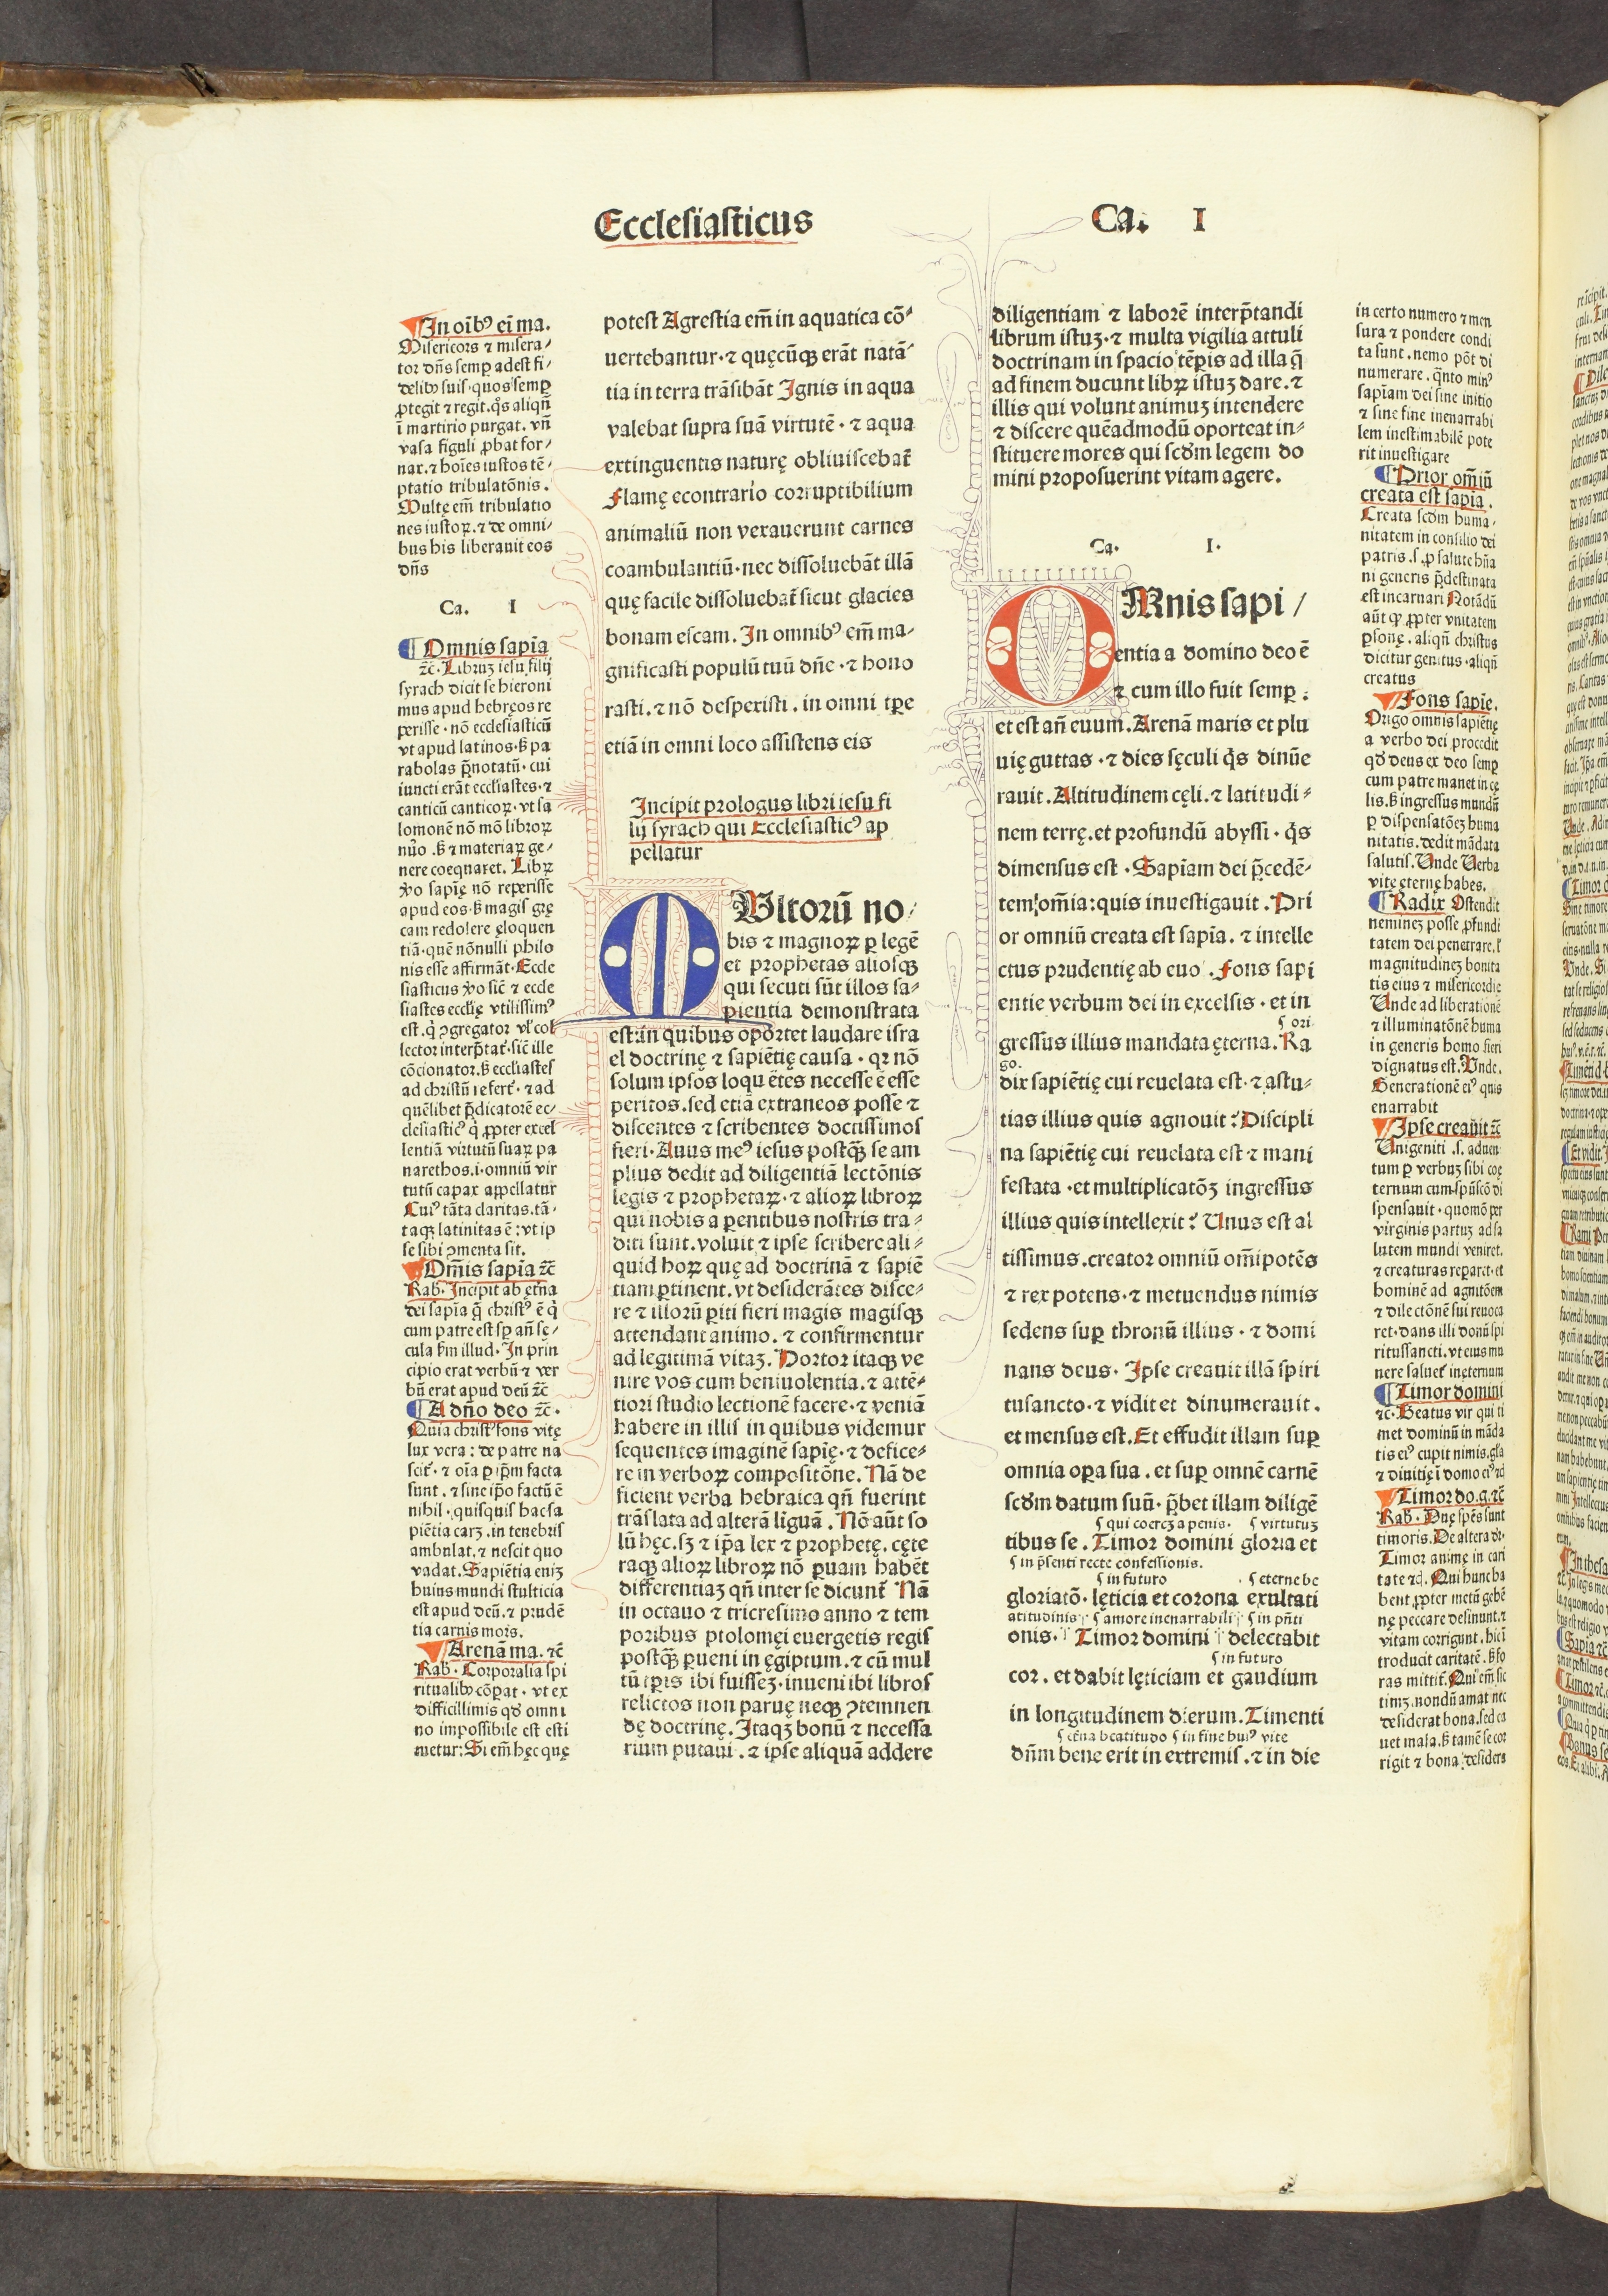 Ecclesiasticus
Ca. I
In oībꝰ eī ma.
Misericors ⁊ misera⸗
tor dn̄s semp̲ adest fi⸗
delibꝫ suis·quos semp̲
ꝓtegit ⁊ regit.q̊s aliqn̄
ī martirio purgat. vn̄
vasa figuli ꝓbat for⸗
nax.⁊ hoīes iustos tē⸗
ptatio tribulatōnis.
Multę em̄ tribulatio
nes iustoꝝ.⁊ de omni⸗
bus his liberauit eos
dn̄s
Ca. I
Omnis sapīa
⁊c̄. Libruꝫ iesu filij
syrach dicit se hieroni
mus apud hebręos re
perisse·nō ecclesiasticū
vt apud latinos·ß pa
rabolas p̄notatū·cui
iuncti erāt eccl̄iastes·⁊
canticū canticoꝝ·vt sa
lomonē nō mō libroꝝ
nūo .ß ⁊ materiaꝝ ge⸗
nere coequaret. Libꝝ
ꝟo sapię nō reperisse
apud eos·ß magis grę
cam redolere ęloquen
tiā·quē nōnulli philo
nis esse affirmāt·Eccle
siasticus ꝟo sic̄ ⁊ eccle
siastes eccl̄ię vtilissimꝰ
est.q̇ ꝯgregator vl̓ col
lector interp̄tat᷑·sic̄ ille
cōcionator.ß eccl̄iastes
ad christū refert᷑·⁊ ad
quēlibet p̄dicatorē ec⸗
clesiasticꝰ q̇ ꝓpter excel
lentiā virtutū suaꝝ pa
narethos.i.omniū vir
tutū capax appellatur
Cuiꝰ tāta claritas.tā⸗
taqꝫ latinitas ē:vt ip
se sibi ꝯmenta sit.
Om̄is sapīa ⁊c̄
Rab̄. Incipit ab ęt̄na
dei sapīa q̄ christꝰ ē q̇
cum patre est sp̲ an̄ sę⸗
cula ßm illud. In prin
cipio erat verbū ⁊ ver
bū erat apud deū ⁊c̄
A dn̄o deo ⁊c̄.
Quia christꝰ fons vitę
lux vera: de patre na
scit᷑.⁊ oīa p̲ ip̄m facta
sunt.⁊ sine ip̄o factū ē
nihil. quisquis hac sa
piētia caret.in tenebris
ambulat.⁊ nescit quo
vadat. Sapiētia eniꝫ
huius mundi stulticia
est apud deū.⁊ prudē
tia carnis mors.
Arenā ma. ⁊c̄
Rab̄. Corporalia spi
ritualibꝫ cōpat. vt ex
difficillimis qd̓ omni
no impossibile est esti
metur: Si em̄ hęc quę
potest Agrestia em̄ in aquatica cō⸗
uertebantur·⁊ quęcūqꝫ erāt natā⸗
tia in terra trāsibāt Ignis in aqua
valebat supra suā virtutē·⁊ aqua
extinguentis naturę obliuiscebat᷑
Flamę econtrario corruptibilium
animaliū non vexauerunt carnes
coambulantiū·nec dissoluebāt illā
quę facile dissoluebat᷑ sicut glacies
bonam escam. In omnibꝰ em̄ ma⸗
gnificasti populū tuū dn̄e·⁊ hono
rasti.⁊ nō despexisti. in omni tp̲e
etiā in omni loco assistens eis
Incipit prologus libri iesu fi
lij syrach qui Ecclesiasticꝰ ap
pellatur
MUltorū no⸗
bis ⁊ magnoꝝ p̲ legē
et prophetas aliosqꝫ
qui secuti sūt illos sa⸗
pientia demonstrata
est:in quibus oportet laudare isra
el doctrinę ⁊ sapiētię causa·qꝛ nō
solum ipsos loquētes necesse ē esse
peritos.sed etiā extraneos posse ⁊
discentes ⁊ scribentes doctissimos
fieri·Auus meꝰ iesus postqꝫ̄ se am
plius dedit ad diligentiā lectōnis
legis ⁊ prophetaꝝ·⁊ alioꝝ libroꝝ
qui nobis a p̲entibus nostris tra⸗
diti sunt.voluit ⁊ ipse scribere ali⸗
quid hoꝝ quę ad doctrinā ⁊ sapiē
tiam p̲tinent.vt desiderātes disce⸗
re ⁊ illorū p̲iti fieri magis magisqꝫ
attendant animo.⁊ confirmentur
ad legitimā vitaꝫ. Hortor itaqꝫ ve
nire vos cum beniuolentia.⁊ attē⸗
tiori studio lectionē facere·⁊ veniā
habere in illis in quibus videmur
sequentes imaginē sapię·⁊ defice⸗
re in verboꝝ compositōne. Nā de
ficient verba hebraica qn̄ fuerint
trāslata ad alterā liguā. Nō aūt so
lū hęc.sꝫ ⁊ ip̄a lex ⁊ prophetę.cęte
raqꝫ alioꝝ libroꝝ nō p̲uam habēt
differentiaꝫ qn̄ inter se dicunt᷑ Nā
in octauo ⁊ tricesimo anno ⁊ tem
poribus ptolomęi euergetis regis
postqꝫ̄ p̲ueni in ęgiptum.⁊ cū mul
tū tp̲is ibi fuisseꝫ·inueni ibi libros
relictos non paruę neqꝫ ꝯtemnen
dę doctrinę. Itaqꝫ bonū ⁊ necessa
rium putaui.⁊ ipse aliquā addere
diligentiam ⁊ laborē interp̄tandi
librum istuꝫ·⁊ multa vigilia attuli
doctrinam in spacio tp̲is ad illa q̄
ad finem ducunt libꝝ istuꝫ dare.⁊
illis qui volunt animuꝫ intendere
⁊ discere quēadmodū oporteat in⸗
stituere mores qui scd̓m legem do
mini proposuerint vitam agere.
Ca. I.
OMnis sapi⸗
entia a domino deo ē
⁊ cum illo fuit semp̲:
et est an̄ euum. Arenā maris et plu
uię guttas·⁊ dies sęculi q̊s dinūe
rauit. Altitudinem cęli.⁊ latitudi⸗
nem terrę.et profundū abyssi·q̊s
dimensus est. Sapīam dei p̄cedē⸗
tem om̄ia:quis inuestigauit. Pri
or omniū creata est sapīa. ⁊ intelle
ctus prudentię ab euo. Fons sapi
entie verbum dei in excelsis·et in
ori
gressus illius mandata ęterna. Ra
go.
dix sapiētię cui reuelata est·⁊ astu⸗
tias illius quis agnouit? Discipli
na sapiētię cui reuelata est ⁊ mani
festata·et multiplicatōꝫ ingressus
illius quis intellexit? Unus est al
tissimus.creator omniū om̄ipotēs
⁊ rex potens·⁊ metuendus nimis
sedens sup̲ thronū illius·⁊ domi
nans deus. Ipse creauit illā spiri
tusancto·⁊ vidit et dinumerauit.
et mensus est. Et effudit illam sup̲
omnia op̲a sua.et sup̲ omnē carnē
scd̓m datum suū·p̄bet illam diligē
qui coerceꝫ a penis. virtutuꝫ
tibus se. Timor domini gloria et
in p̄senti recte confessionis.
in futuro eterne be
gloriatō·lęticia et corona exultati
atitudinis amore inenarrabili in pn̄ti
onis. Timor domini delectabit
in futuro
cor. et dabit lęticiam et gaudium
in longitudinem dierum. Timenti
et̄na beatitudo in fine huiꝰ vite
dn̄m bene erit in extremis.⁊ in die
in certo numero ⁊ men
sura ⁊ pondere condi
ta sunt.nemo pōt di
numerare.q̄nto minꝰ
sapīam dei sine initio
⁊ sine fine inenarrabi
lem inestimabilē pote
rit inuestigare
Prior om̄iū
creata est sapīa.
Creata scd̓m huma⸗
nitatem in consilio dei
patris.s.ꝓ salute hūa
ni generis p̄destinata
est incarnari Notādū
aūt qꝫ ꝓpter vnitatem
p̲sonę.aliqn̄ christus
dicitur genitus·aliqn̄
creatus
Fons sapię.
Origo omnis sapiētię
a verbo dei procedit
qd̓ deus ex deo semp̲
cum patre manet in cę
lis.ß ingressus mundū
p̲ dispensatōeꝫ huma
nitatis.dedit mādata
salutis. Unde Verba
vitę ęternę habes.
Radix Ostendit
nemineꝫ posse ꝓfundi
tatem dei penetrare.l̓
magnitudineꝫ bonita
tis eius ⁊ misericordię
Unde ad liberationē
⁊ illuminatōnē huma
in generis homo fieri
dignatus est. Unde.
Generationē eiꝰ quis
enarrabit
Ipse creauit ⁊c̄
Unigeniti .s. aduen
tum p̲ verbuꝫ sibi coę
ternum cum sp̄uscō di
spensauit·quomō p̲er
virginis partuꝫ ad sa
lutem mundi veniret.
⁊ creaturas rep̲aret·et
hominē ad agnitōem
⁊ dilectōnē sui reuoca
ret·dans illi donū spi
ritussancti.vt eius mu
nere saluet᷑ in ęternum
Timor domini
⁊c̄. Beatus vir qui ti
met dominū in māda
tis eiꝰ cupit nimis.gl̄a
⁊ diuitię ī domo eiꝰ ⁊c̄
Timor do.g.⁊c̄
Rab̄. Duę spēs sunt
timoris. De altera dr̄.
Timor animę in cari
tate ⁊c̄. Qui hunc ha
bent ꝓpter metū gehē
nę peccare desinunt.⁊
vitam corrigunt.hic ī
troducit caritatē.ß fo
ras mittit᷑. Qui em̄ sic
timꝫ.nondū amat nec
desiderat bona.sed ca
uet mala.ß tamē se cor
rigit ⁊ bona desidera